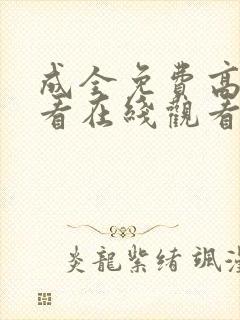 成全免费高
看在綫觀看
炎龍紫绪 颯漫